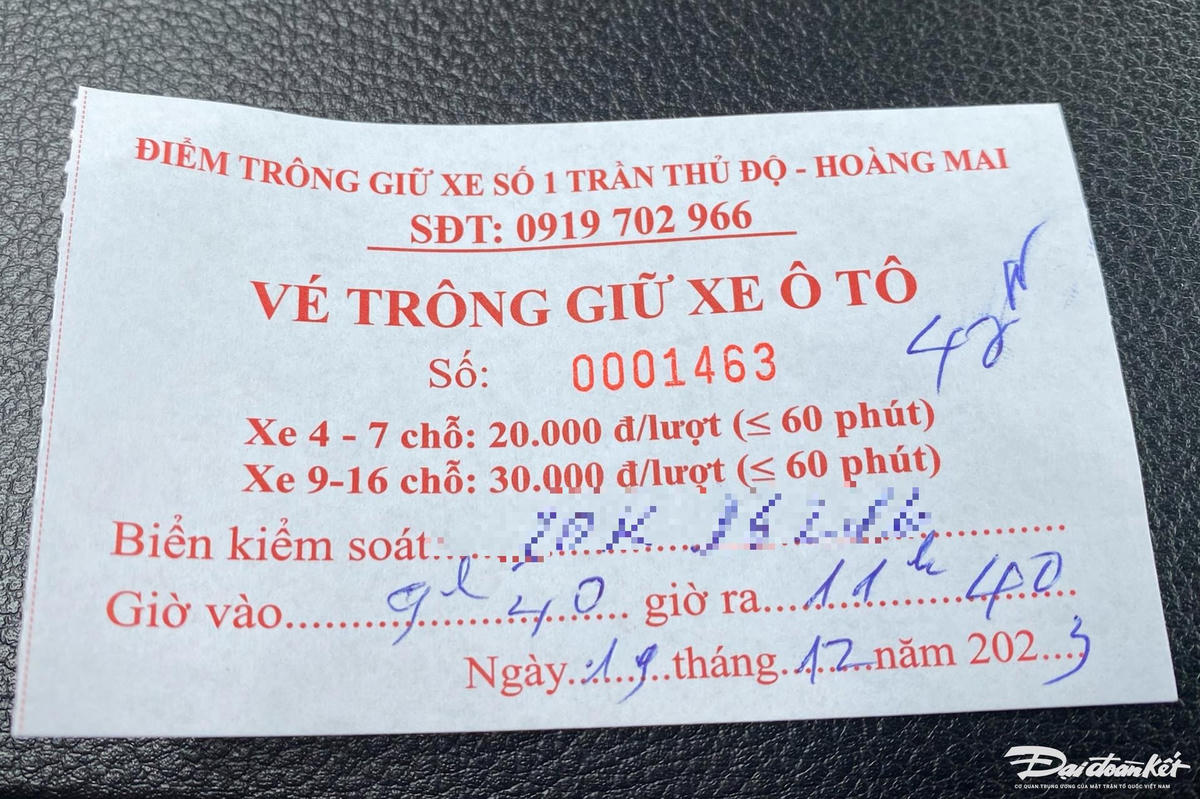 ĐIỂM TRÔNG GIỮ XE SỐ 1 TRẦN THỦ ĐỘ - HOÀNG MAI
SĐT: 0919 702 966
VÉ TRÔNG GIỮ XE Ô TÔ
Số: 0001463
Xe 4 - 7 chỗ: 20.000 đ/lượt (≤ 60 phút)
Xe 9-16 chỗ: 30.000 đ/lượt (≤ 60 phút)
Biển kiểm soát
Giờ vào 9h 40 giờ ra 11h 40
Ngày 19 tháng 12 năm 2023
Đại đoàn Kết
CƠ QUAN TRUNG ƯƠNG CỦA MẶT TRẬN TỔ QUỐC VIỆT NAM